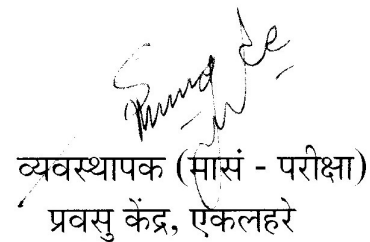 व्यवस्थापक (मासं - परीक्षा)
प्रवसु केंद्र, एकलहरे